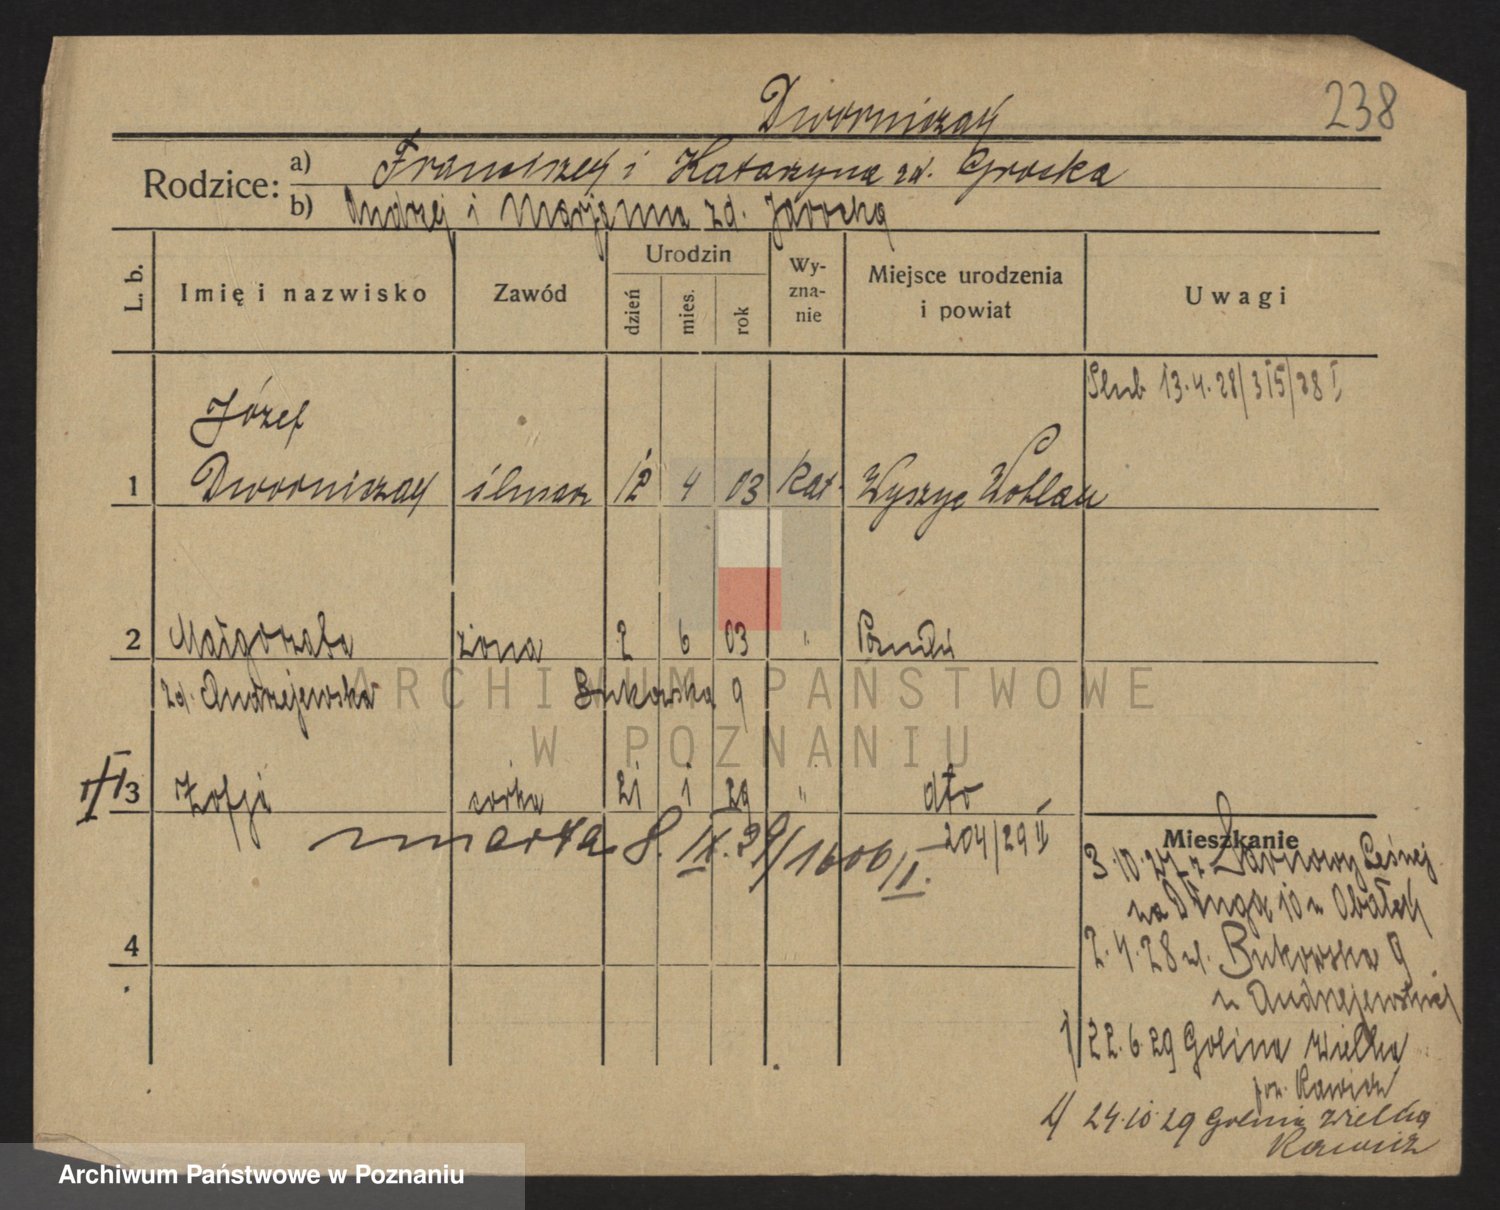 238
Dworniczak
Rodzice:
a) Franciszek i Katarzyna zd. Groska
b) Andrzej i Marjanna zd. Jarocka
L. b.
Imię i nazwisko
Zawód
Urodzin
dzień
mies.
rok
Wy-
zna-
nie
Miejsce urodzenia
i powiat
Uwagi
Ślub 13.4.28/315/28 I
Józef
1 Dworniczak ślusarz 12 4 03 kat. Wohlau
2 Małgorzata żona 2 6 03 " Poznań
zd. Andrzejewska Bukowska 9
3 Zofja córka 21 1 29 " dto
204/29 II
zmarła 8. IX. 29/1606/I.
4
Mieszkanie
3.10.27 z Leśnej
na Długą 10 u
2.4.28 ul. Bukowska 9
u Andrzejewskich
1/ 22.6.29 Golina Wielka
pow. Rawicz
24.10.29 Golina Wielka
Rawicz
ARCHIWUM PAŃSTWOWE
W POZNANIU
Archiwum Państwowe w Poznaniu